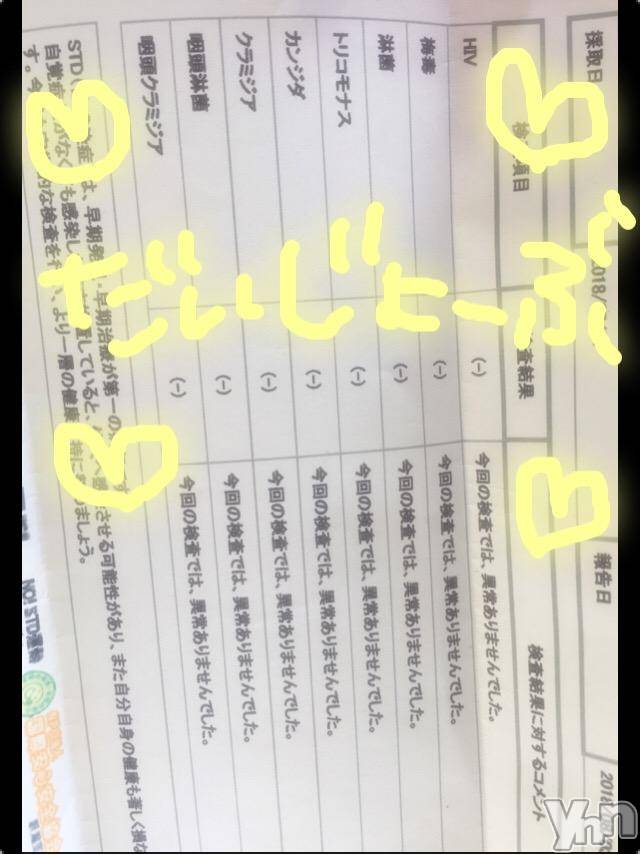 採取日 2018/ 報告日 2018
検 項目 査結果 検査結果に対するコメント
HIV (-) 今回の検査では、異常ありませんでした。
梅毒 (-) 今回の検査では、異常ありませんでした。
淋菌 (-) 今回の検査では、異常ありませんでした。
トリコモナス (-) 今回の検査では、異常ありませんでした。
カンジダ (-) 今回の検査では、異常ありませんでした。
クラミジア (-) 今回の検査では、異常ありませんでした。
咽頭淋菌 (-) 今回の検査では、異常ありませんでした。
咽頭クラミジア (-) 今回の検査では、異常ありませんでした。
STD 症 は、早期発 ・早期治療が第一の す
自覚症 がなく も感染し 査していると、 感 させる可能性があり、また自分自身の健康も著しく損な
す。今 的な検査を 、より一層の健康 持に ましょう。
NO! STD運動
だいじょーぶ